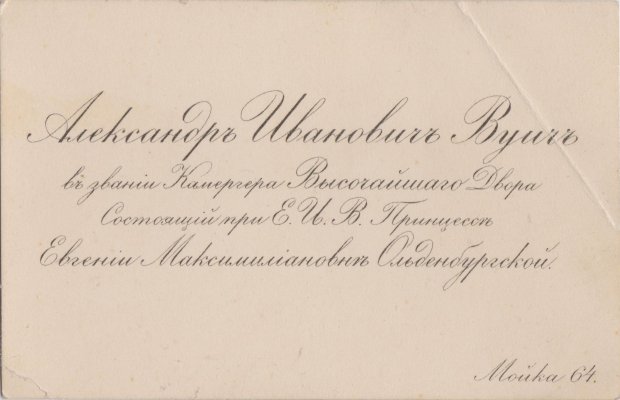 Александръ Ивановичъ Вуичъ
въ званіи Камергера Высочайшаго Двора
Состоящій при Е. И. В. Принцессѣ
Евгеніи Максимиліановнѣ Ольденбургской.
Мойка 64.